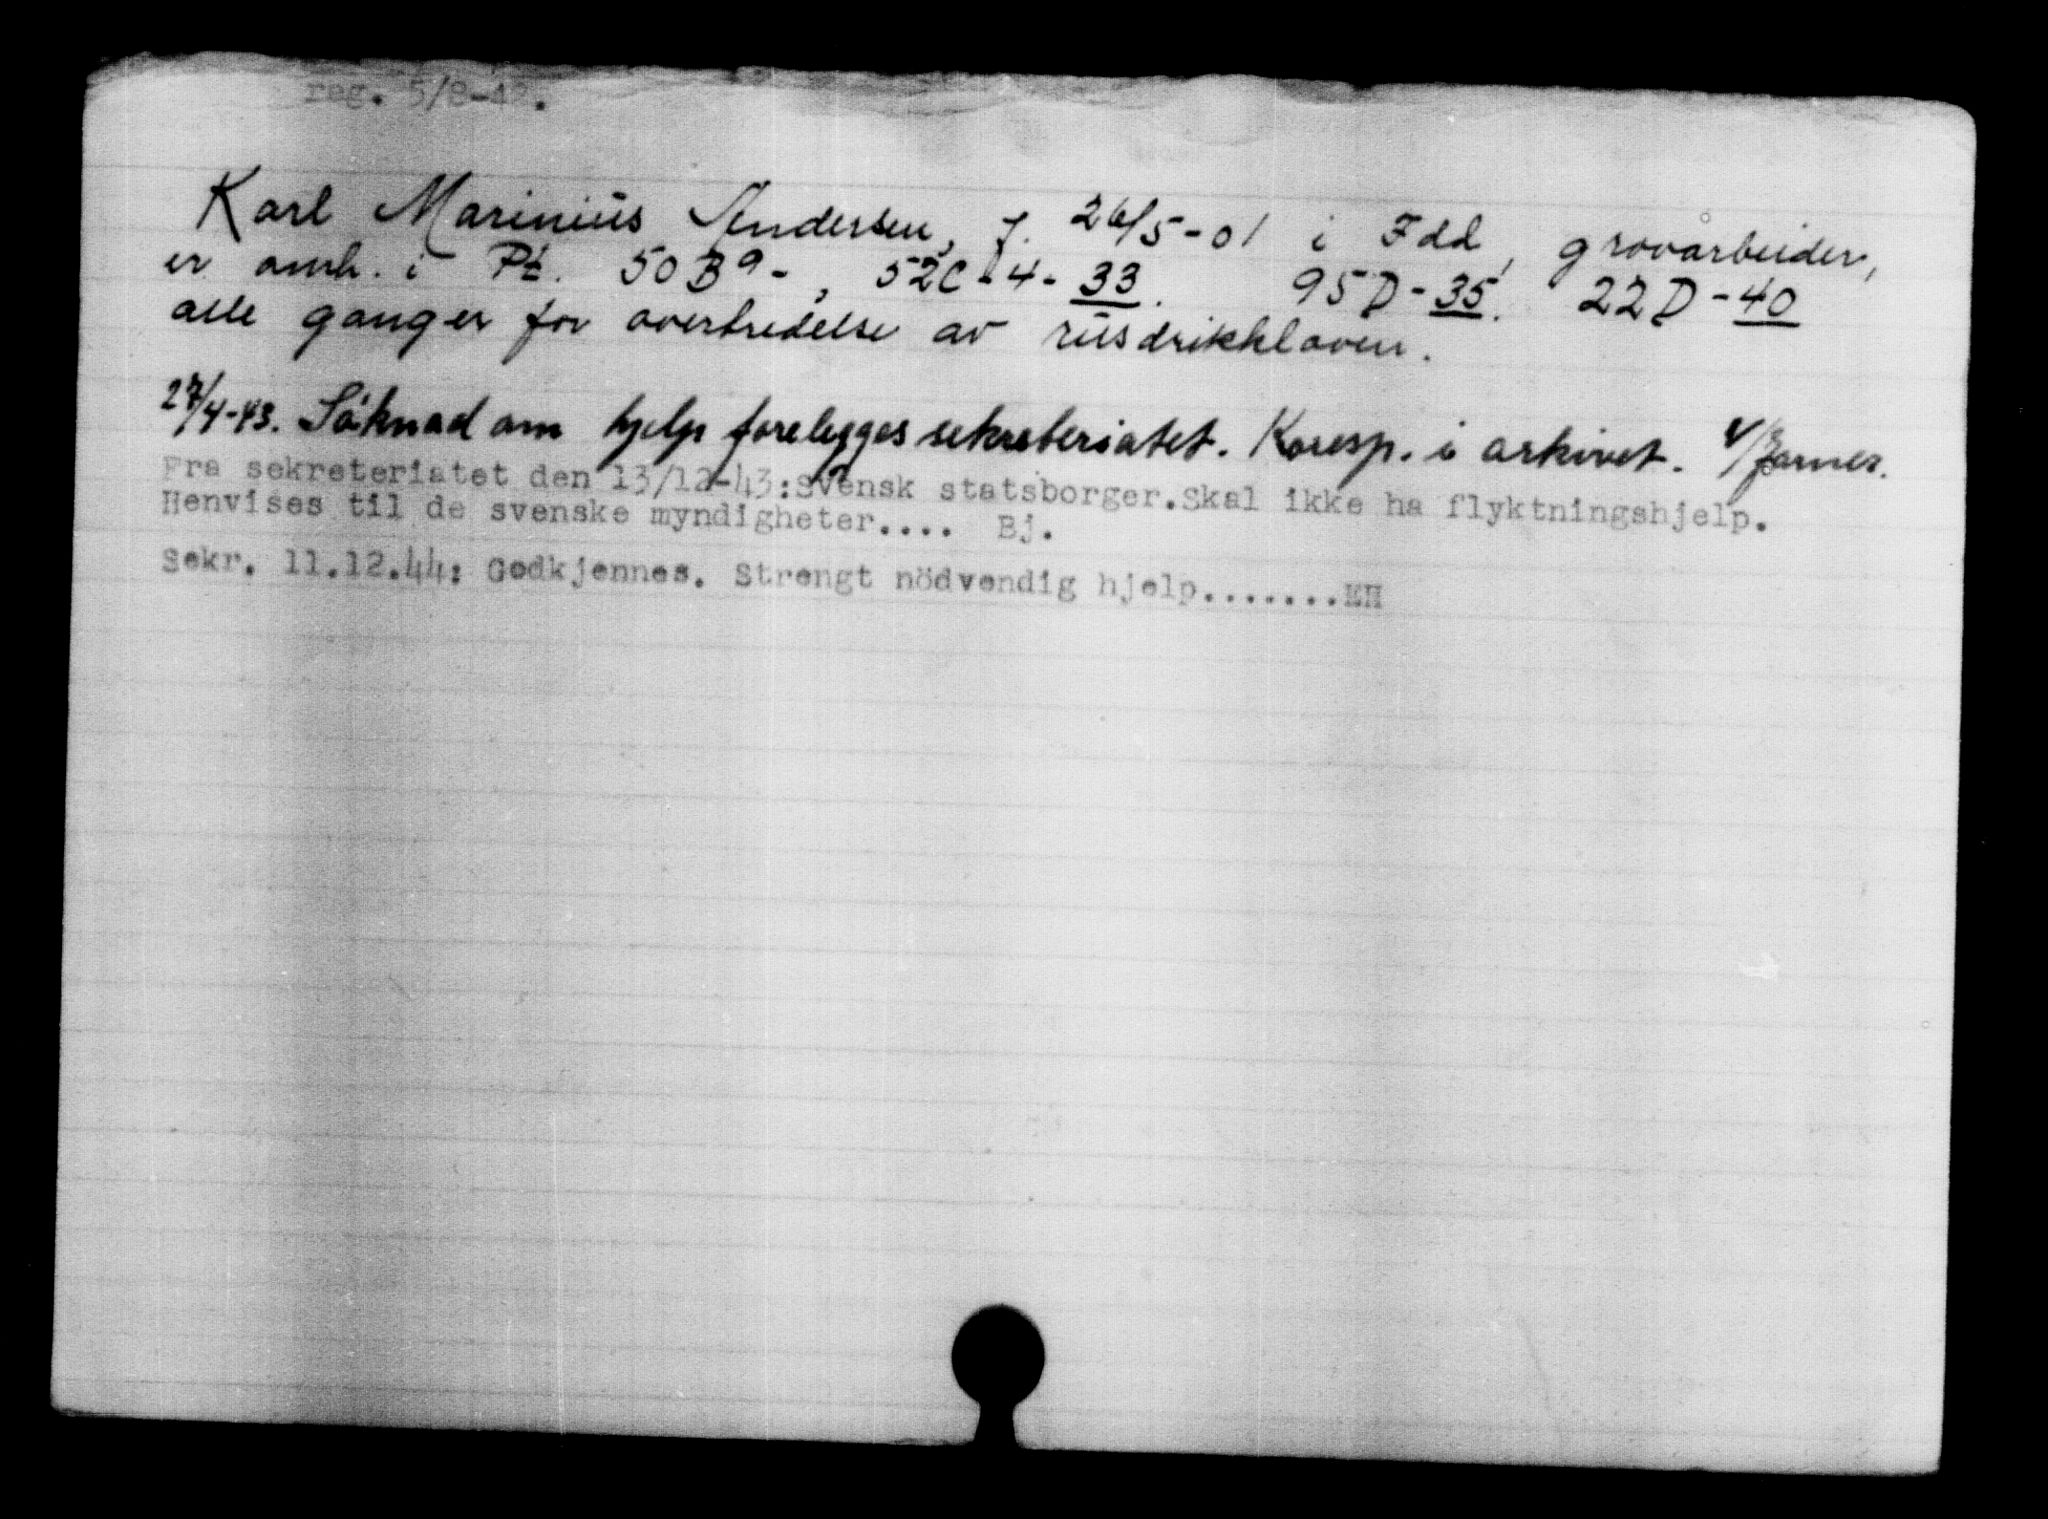 reg. 5/8-42.
Karl Marinius Andersen, f. 26/5-01 i Idd, grovarbeider,
er omh. i Pt. 50B9-, 52C-4-33. 95D-35. 22D-40
alle ganger for overtredelse av rusdrikkloven.
27/4-43. Söknad om hjelp forelegges sekreteriatet. Koresp. i arkivet.
Fra sekreteriatet den 13/12-43:Svensk statsborger.Skal ikke ha flyktningshjelp.
Henvises til de svenske myndigheter.... Bj.
Sekr. 11.12.44: Godkjennes. Strengt nödvendig hjelp.......EH